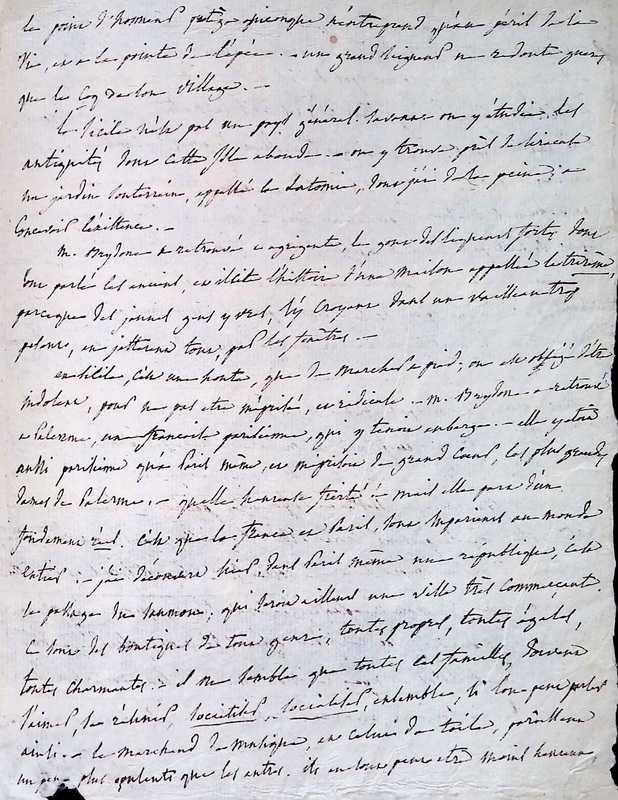 le point d'honneur quiconque n'entreprend qu'au péril de la
vie, et a la pointe de l'épée. - un grand seigneur ne redoute guere,
que le Coq de son village. -
la Sicile n'est pas un pays général. Savans on y étudie les
antiquités dont cette Isle abonde. - on y trouve près de Siracuse
un jardin souterrain, appellé la Latomie, dont j'ai de la peine, a
Concevoir l'existence. -
M. Brydone a retrouvé a agrigente, le gout des liqueurs fortes dont
ont parlé les anciens, et il cite l'histoire d'une maison appellée la trireme,
parceque des jeunes gens yvres, s'y croyant dans un vaisseau trop
pesant, en jetterent tout, par les fenêtres. -
en Sicile, c'est une honte, que de marcher a pied; on est obligé d'être
indolent, pour ne pas etre méprisé, et ridicule. - M. Brydone a retrouvé
a Palerme, une françoise parisienne, qui y tenoit auberge. - elle étoit
aussi parisienne qu'a Paris même, et méprisoit de grand Coeur, les plus grandes
dames de Palerme. - quelle heureuse fierté! - mais elle part d'un
fondement réel. C'est que la france et Paris, sont Superieurs au monde
entier. - j'ai découvert hier, dans Paris même une république, c'est
le passage du Saumon, qui seroit ailleurs une ville très Commerçante.
Ce sont des boutiques de tout genre, toutes propres, toutes égales,
toutes Charmantes. - il me semble que toutes ces familles, doivent
s'aimer, se réunir, societiser, sociabiliser ensemble, si l'on peut parler
ainsi. - le marchand de musique, et celui de toile, paroissent
un peu plus opulents que les autres. ils en sont peut etre moins heureux,